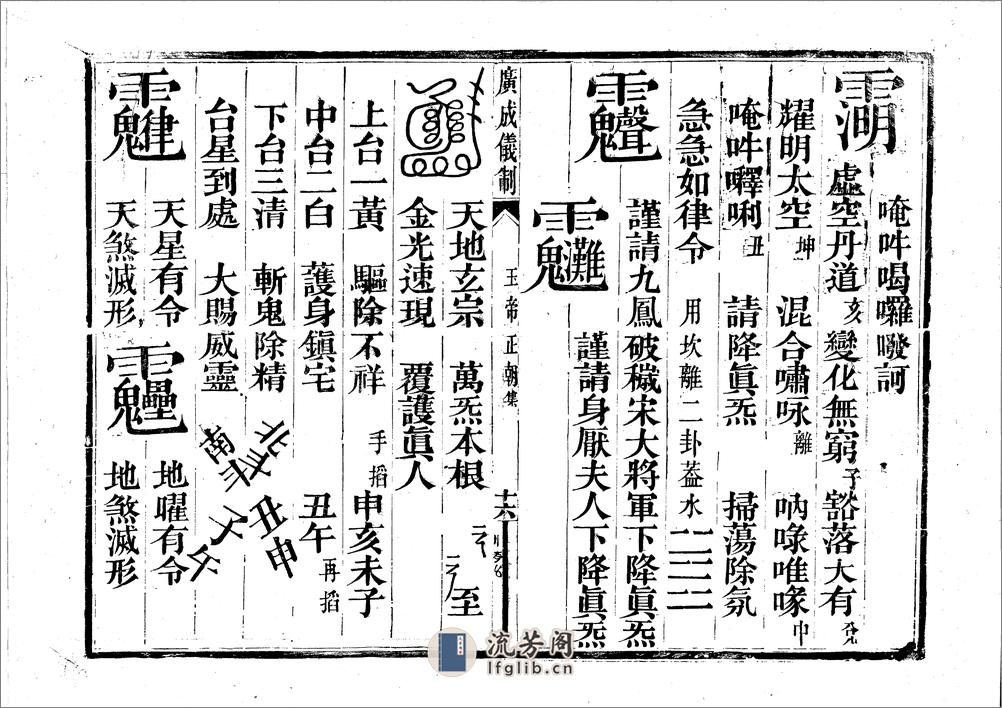 唵吽喝囉㘄訶
虛空丹道亥變化無窮子豁落大有兌
耀明太空坤混合嘯咏離吶喙唯喙中
唵吽㘁唎丑請降眞炁掃蕩除氛
急急如律令用坎離二卦葢水
謹請九鳳破穢宋大將軍下降眞炁
謹請身厭夫人下降眞炁
廣成儀制
玉帝正朝集
十六
天地玄宗萬炁本根至
金光速現覆護眞人
上台一黃驅除不祥手搯申亥未子
中台二白護身鎮宅丑午再搯
下台三清斬鬼除精
北斗丑申
台星到處大賜威靈
南斗
天星有令地曜有令
天煞滅形地煞滅形
流芳阁
lfglib.cn